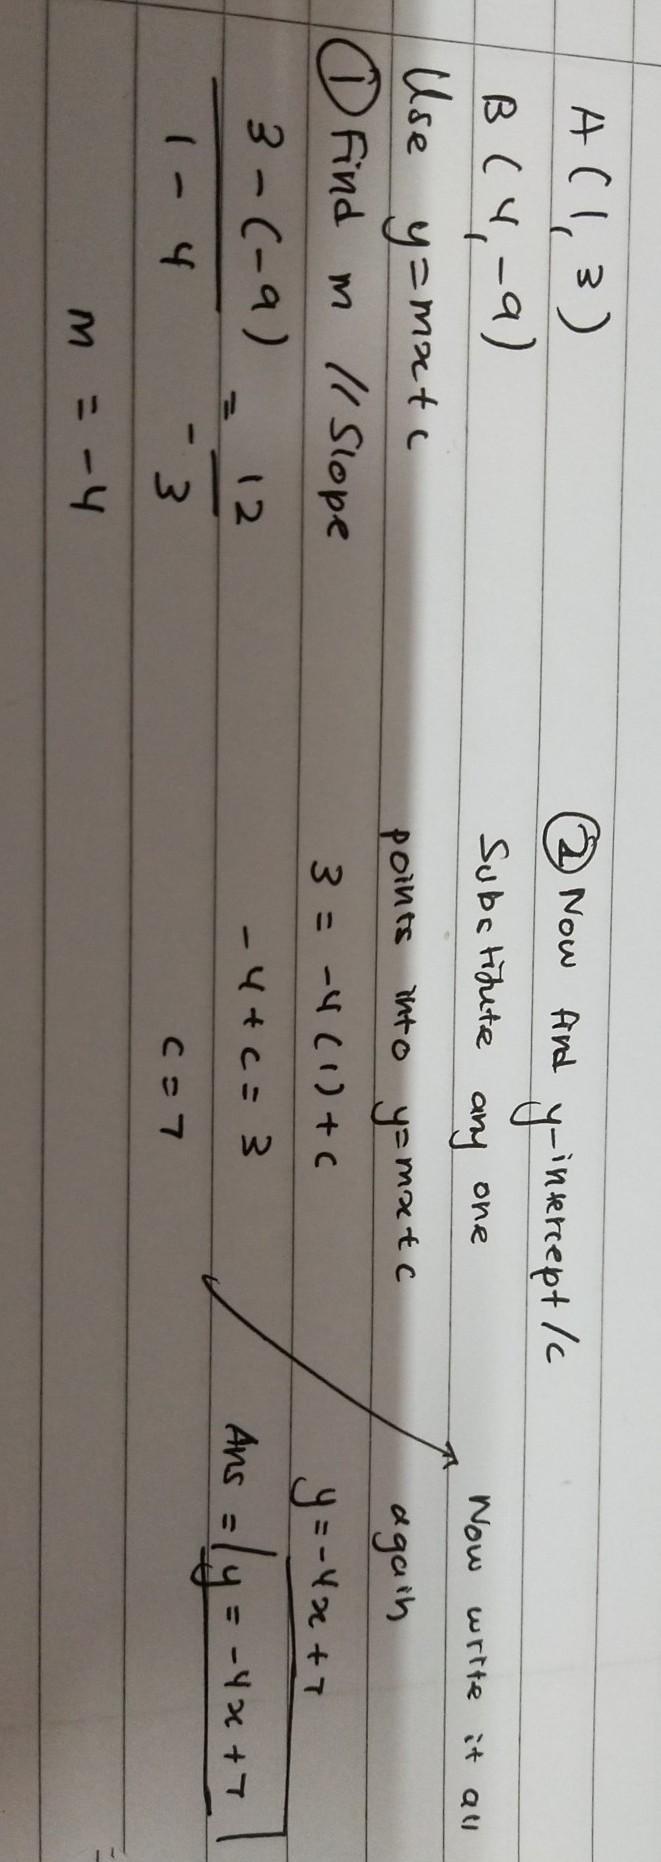 A (1, 3)
B (4, -9)
Use y=mx+c
① Find m // Slope
3 - (-9) = 12
1 - 4 -3
m = -4
② Now find y-intercept/c
Substitute any one
points into y=mx+c
3 = -4(1)+c
-4+c = 3
c = 7
Now write it all
again
y=-4x+7
Ans = y = -4x+7